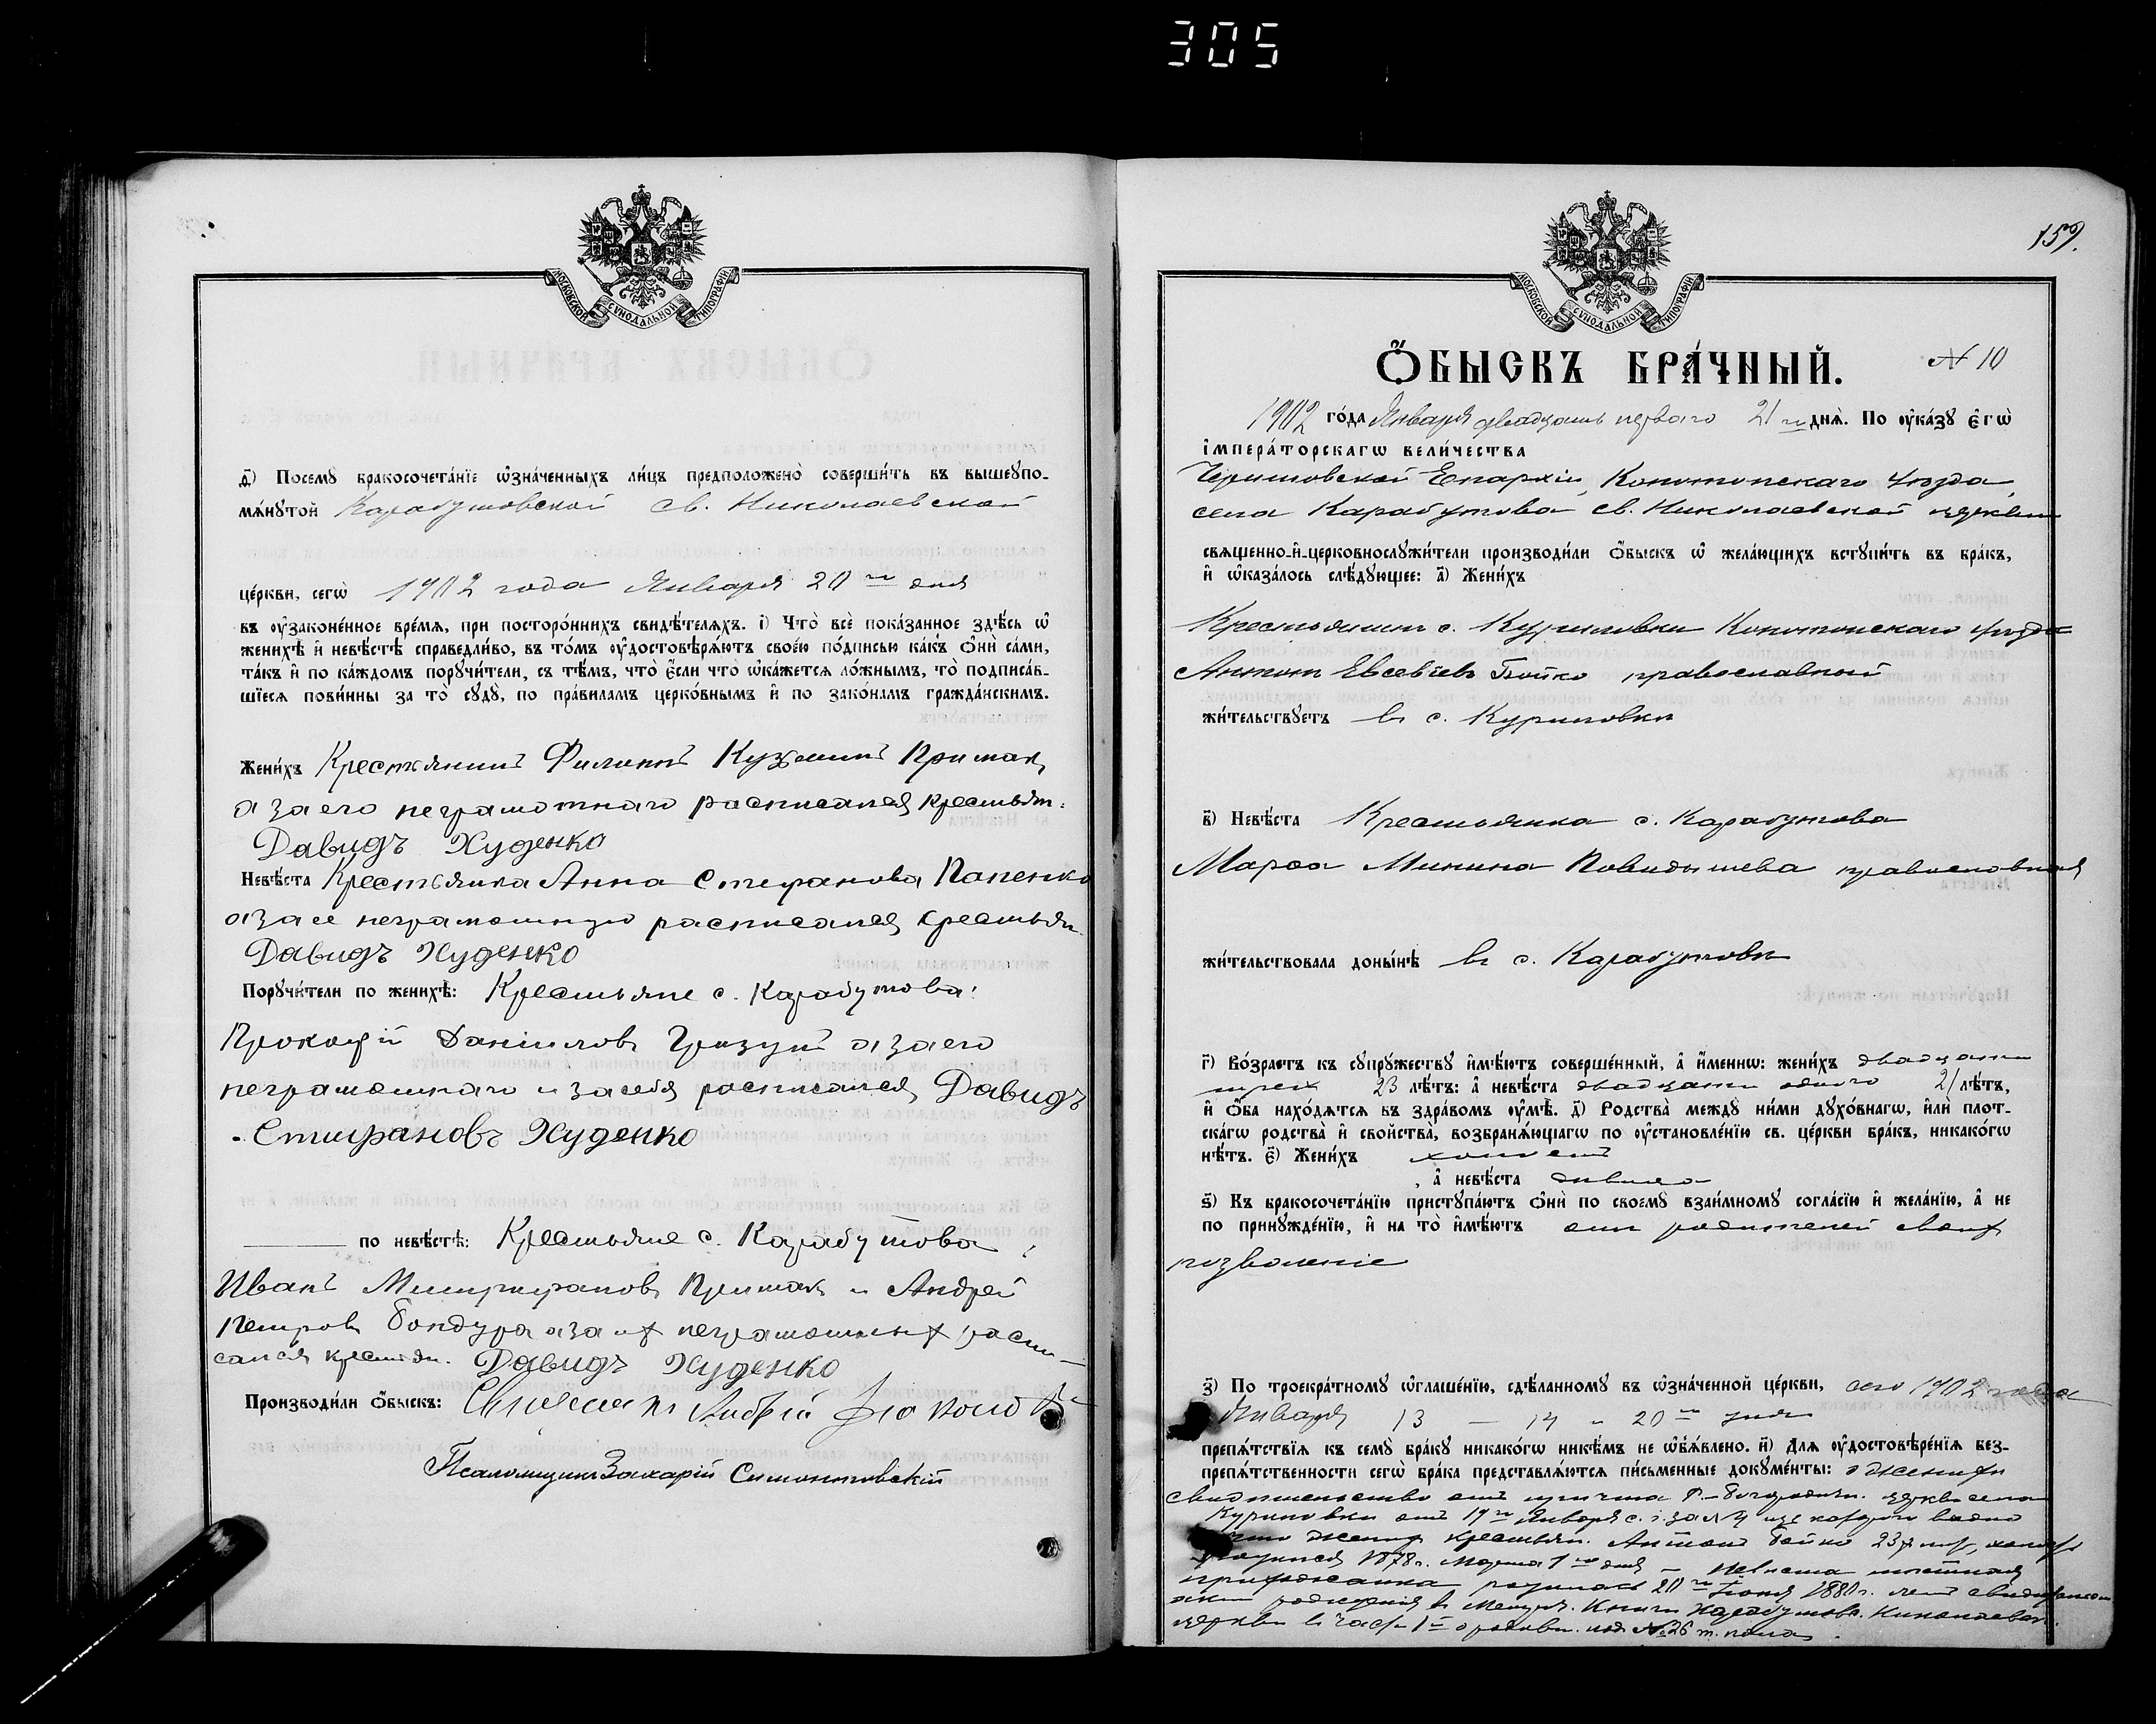 305
МОСКОВСКОЙ СѴНОДАЛЬНОЙ ТИПОГРАФІИ
д҃) Посемꙋ бракосочета́нїе ѡ҆зна́ченныхъ ли́цъ предположено̀ соверши́ть въ вышеꙋпо-
мѧ́нꙋтой Карабутовской св. Николаевской
це́ркви, сегѡ̀ 1902 года Января 20го дня
въ ᲂу҆законе́нное вре́мѧ, при посторо́ннихъ свидѣ́телѧхъ. і҃) Что̀ всѐ пока́занное здѣ́сь ѡ҆
женихѣ̀ и҆ невѣ́стѣ справедли́во, въ то́мъ ᲂу҆достовѣрѧ́ютъ свое́ю по́дписью ка́къ ѻ҆нѝ са́ми,
та́къ и҆ по ка́ждомъ порꙋчи́тели, съ тѣ́мъ, что̀ є҆́сли что̀ ѡ҆ка́жетсѧ ло́жнымъ, то̀ подписа́в-
шїесѧ пови́нны за то̀ сꙋдꙋ̀, по пра́виламъ церко́внымъ и҆ по зако́намъ гражда́нскимъ.
Жени́хъ Крестьянинъ Филипъ Кузьминъ Примакъ,
а за его неграмотнаго расписался крестьян.
Давидъ Худенко
Невѣ́ста Крестьянка Анна Стефанова Папенко
а за ее неграмотную расписался крестьян.
Давидъ Худенко
Порꙋчи́тели по женихѣ̀: Крестьяне с. Карабутова:
Прокофій Даніиловъ Гризунъ а за его
неграмотнаго и за себя расписался Давидъ
Стефановъ Худенко
по невѣ́стѣ: Крестьяне с. Карабутова:
Иванъ Митрофановъ Примакъ и Андрей
Петровъ Бондура а за их неграмотных распи-
сался крестьян. Давидъ Худенко
Производи́ли ѻ҆́быскъ: Священникъ Андрей
Псаломщикъ Захарій Симонтовскій
159.
МОСКОВСКОЙ СѴНОДАЛЬНОЙ ТИПОГРАФІИ
Ѻ҆́БЫСКЪ БРА́ЧНЫЙ. № 10
1902 го́да Января двадцать перваго 21го днѧ̀. По ᲂу҆ка́зꙋ є҆гѡ̀
і҆мпера́торскагѡ вели́чества
Черниговской Епархіи, Конотопскаго уѣзда,
села Карабутова св. Николаевской церкви
свѧщенно-и҆-церковнослꙋжи́тели производи́ли ѻ҆́быскъ ѡ҆ жела́ющихъ встꙋпи́ть въ бра́къ,
и҆ ѡ҆каза́лось слѣ́дꙋющее: а҃) Жени́хъ
Крестьянинъ с. Куриловки Конотопскаго уѣзда
Антонъ Евсевіевъ Бойко православный
жи́тельствꙋетъ въ с. Куриловки
в҃) Невѣ́ста Крестьянка с. Карабутова
Марѳа Минина православная
жи́тельствовала доны́нѣ въ с. Карабутовѣ
г҃) Во́зрастъ къ сꙋпрꙋ́жествꙋ и҆мѣ́ютъ соверше́нный, а҆ и҆́менно: жени́хъ двадцати
трехъ 23 лѣ́тъ: а҆ невѣ́ста двадцати одного 21 лѣ́тъ,
и҆ ѻ҆́ба нахо́дѧтсѧ въ здра́вомъ ᲂу҆мѣ̀. д҃) Родства̀ междꙋ̀ ни́ми дꙋхо́внагѡ, и҆лѝ плот-
ска́гѡ родства̀ и҆ сво́йства̀, возбранѧ́ющагѡ по ᲂу҆становле́нїю св. це́ркви бра́къ, никако́гѡ
нѣ́тъ. є҃) Жени́хъ холостъ
, а҆ невѣ́ста дѣвица
ѕ҃) Къ бракосочета́нїю пристꙋпа́ютъ ѻ҆нѝ по своемꙋ̀ взаи́мномꙋ согла́сїю и҆ жела́нїю, а҆ не
по принꙋжде́нїю, и҆ на то̀ и҆мѣ́ютъ отъ родителей своих
позволеніе
з҃) По троекра́тномꙋ ѡ҆глаше́нїю, сдѣ́ланномꙋ въ ѡ҆зна́ченной це́ркви, сего 1902 года
Января 13 — 14 и 20го дня
препѧ́тствїѧ къ семꙋ̀ бра́кꙋ никако́гѡ никѣ́мъ не ѡ҆б̾ѧ́влено. и҃) Длѧ ᲂу҆достовѣре́нїѧ без-
препѧ́тственности сегѡ̀ бра́ка представлѧ́ютсѧ пи́сьменные докꙋме́нты: о женихѣ
свидѣтельство отъ причта Р.-Богородич. церкви села
Куриловки отъ 19го Января с. г. за № 4 изъ котораго видно
что женихъ крестьян. Антонъ Бойко 23х лѣт, холостъ
родился 1878 г. Марта 1го дня — Невѣста мѣстная
прихожанка родилась 20го 1880 г.
рожденія въ Метрич. Книги Карабутовс. Николаевск.
церкви въ части 1й о родивш. под № 26 ж. пола.